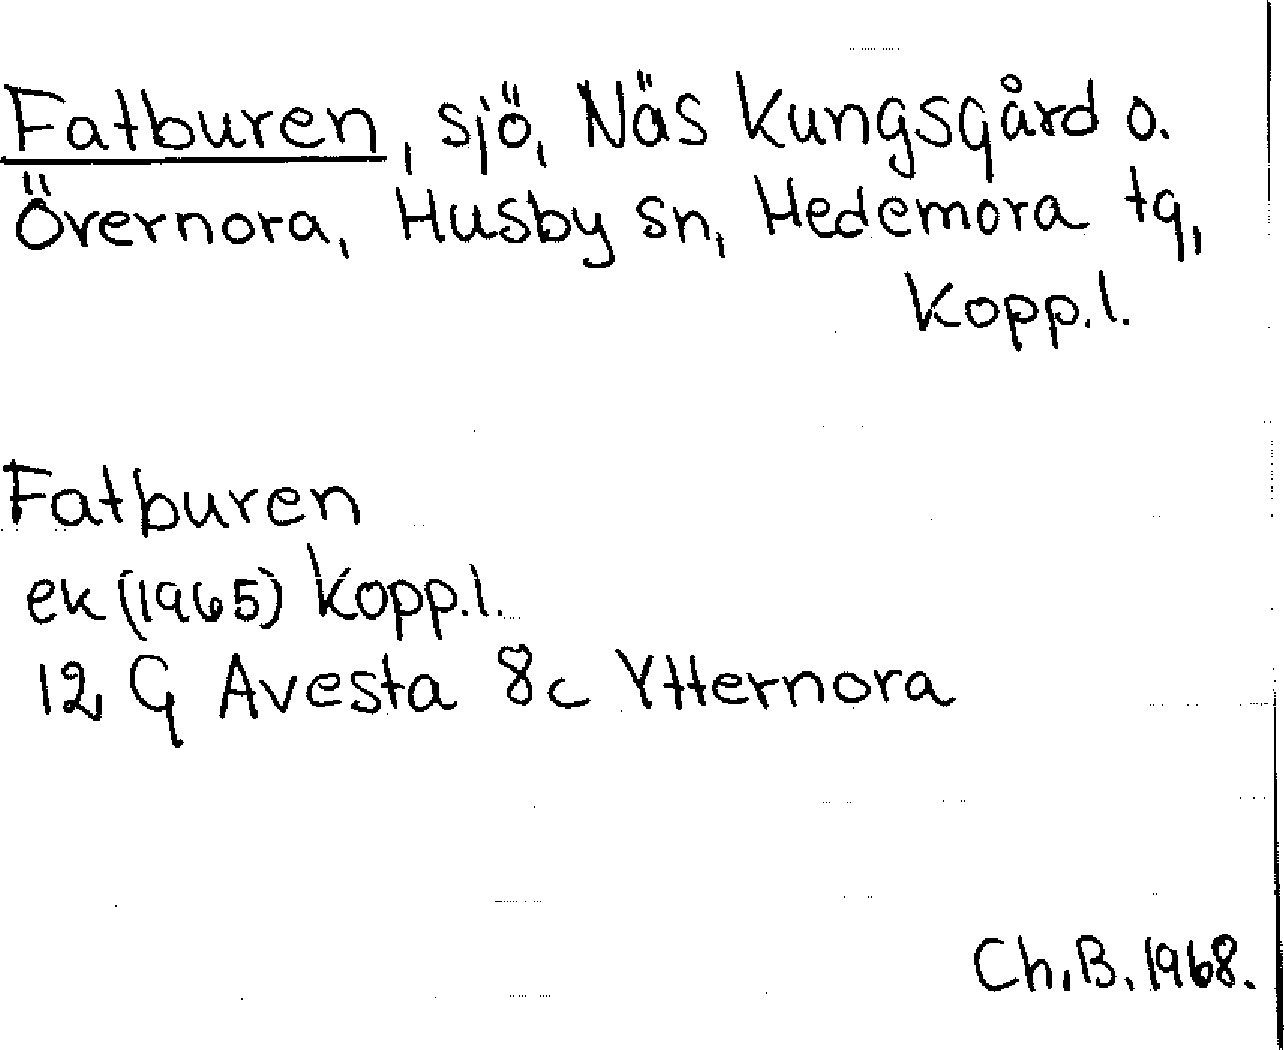 Fatburen, sjö, Näs Kungsgård o.
Övernora, Husby sn, Hedemora tg,
Kopp.l.
Fatburen
ek (1965) Kopp.l.
12 G Avesta 8c Ytternora
Ch.B. 1968.